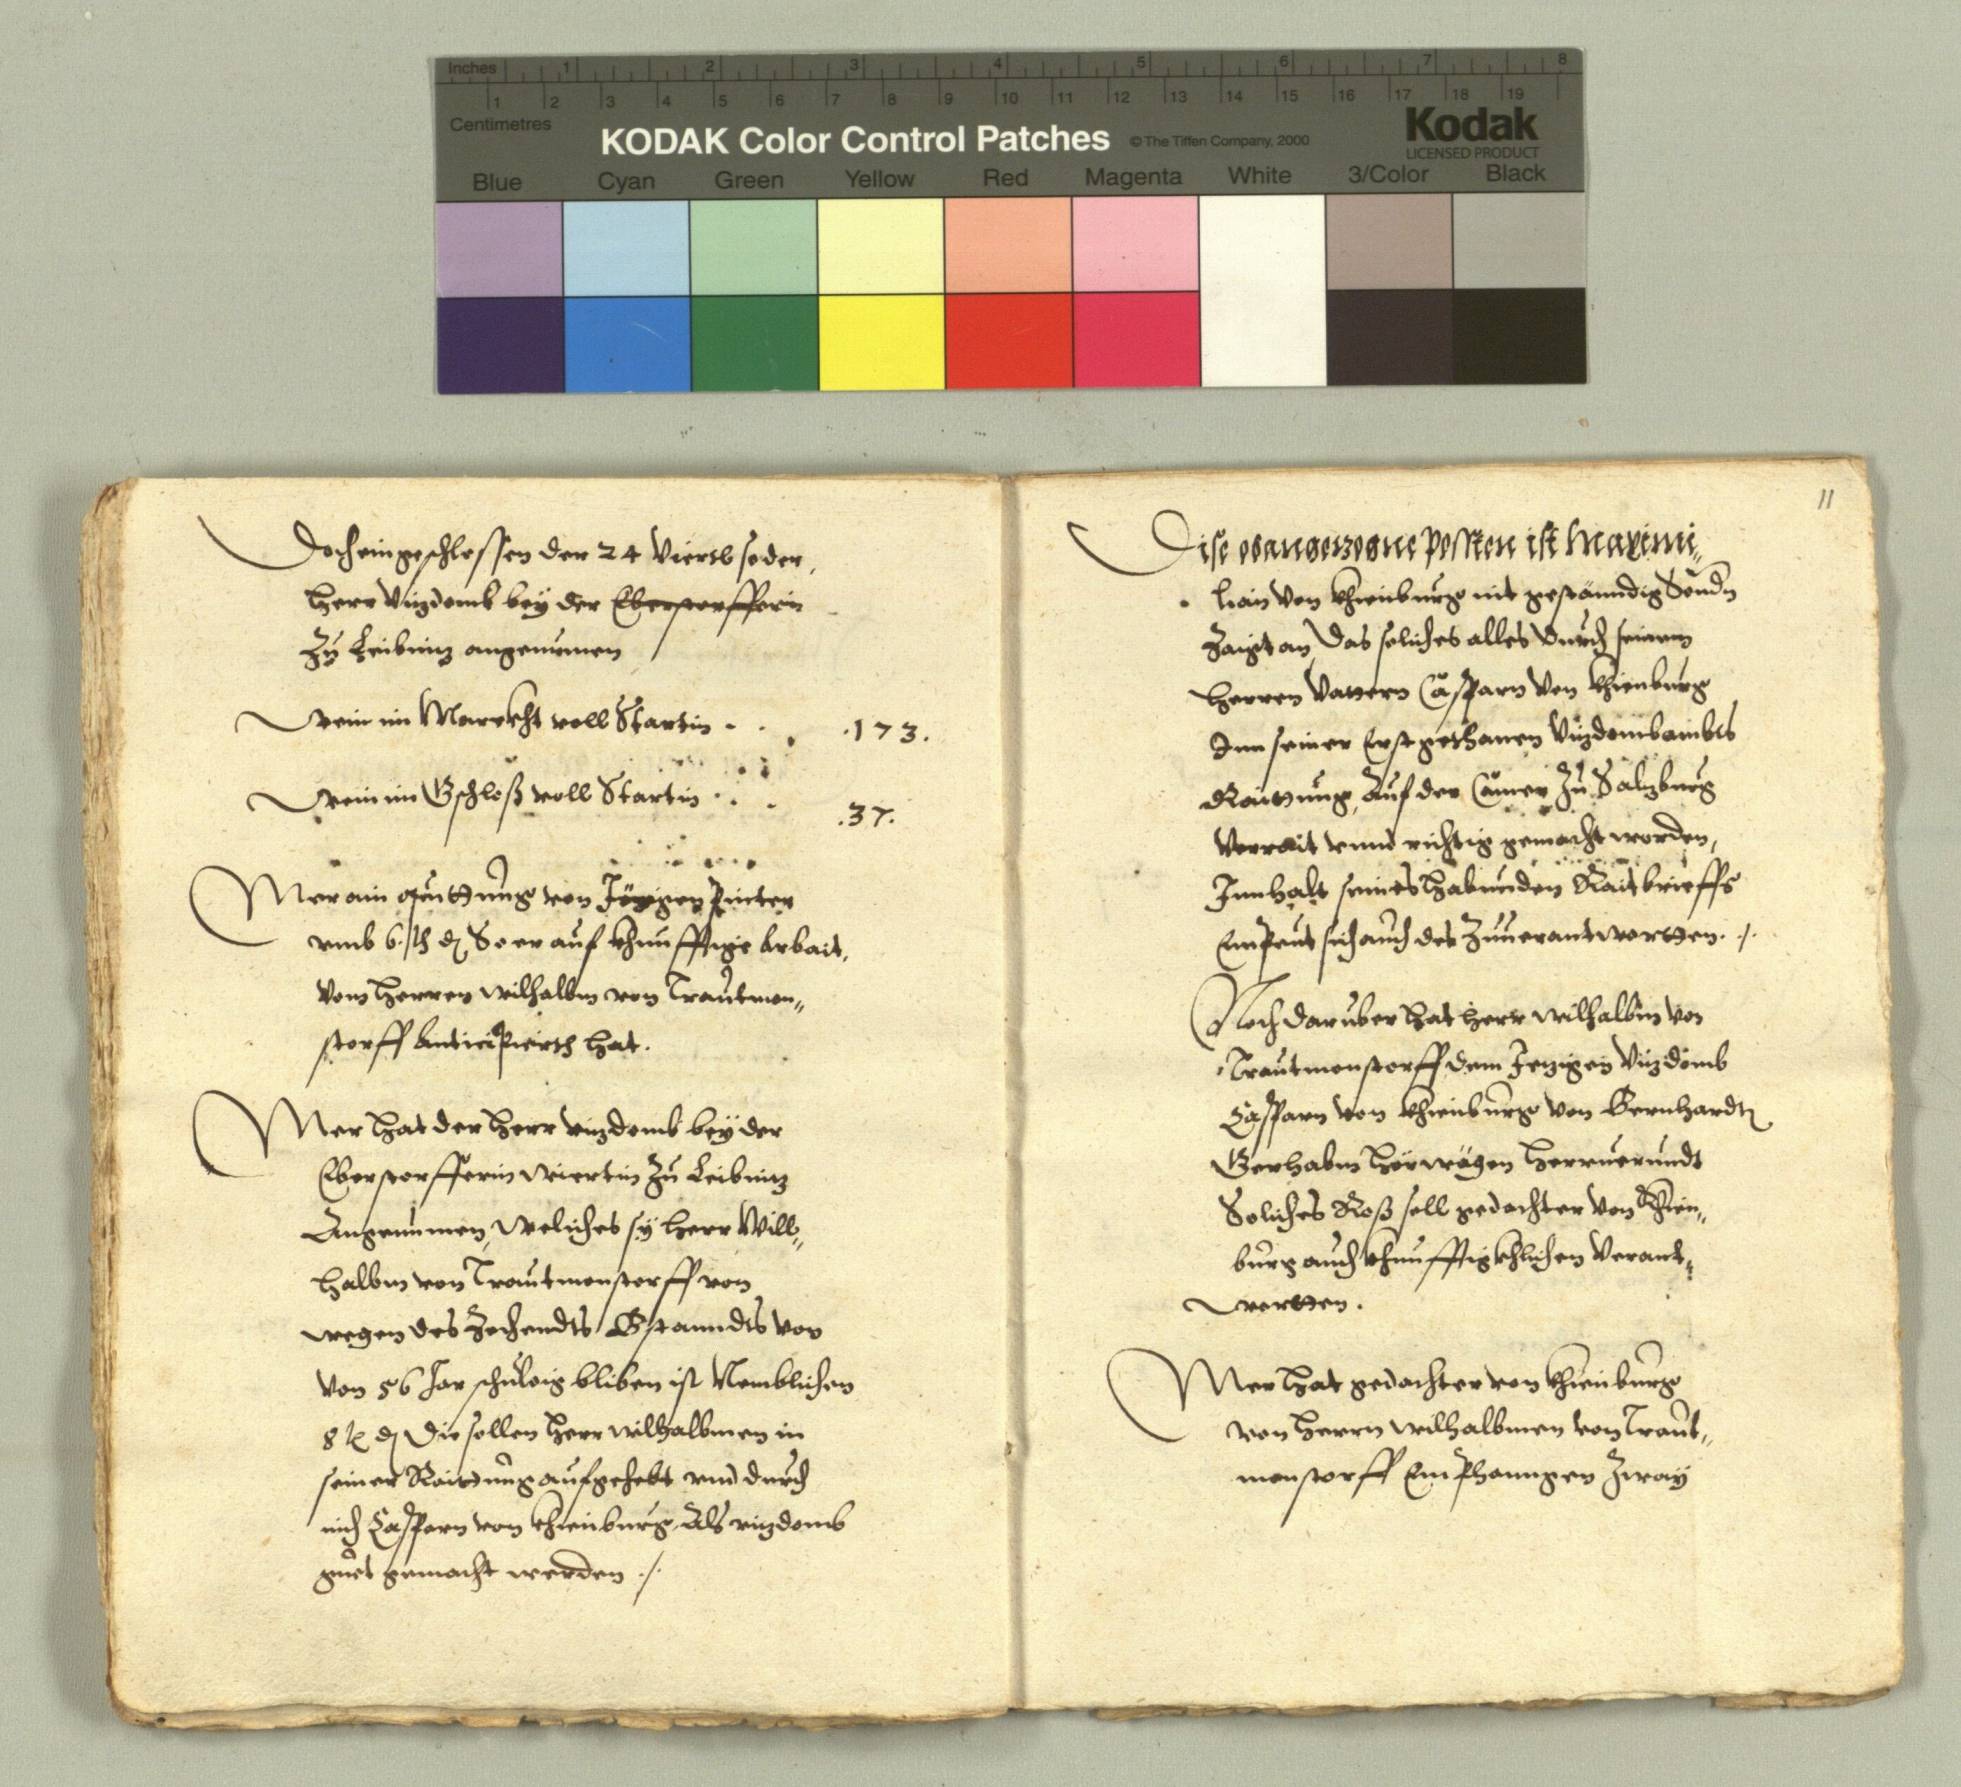 Inches 1 2 3 4 5 6 7 8
1 2 3 4 5 6 7 8 9 10 11 12 13 14 15 16 17 18 19
Centimetres
KODAK Color Control Patches © The Tiffen Company, 2000 Kodak
LICENSED PRODUCT
Blue Cyan Green Yellow Red Magenta White 3/Color Black
Doch eingeschlossen der 24 Viertl so der
herr Vizdomb bey der Eberstorfferin
Zu Leibniz angenumen
Wein im Marckht voll Startin . . .173.
Wein im Gschloß voll Startin . . .37.
Mer ain quittung von Jörigen Pinter
vmb 6 ß ₰ So er auf khunfftige Arbait,
vom herren wilhalbm von Trautmon„
storff Anticipierth hat.
Mer hat der herr vizdomb bey der
Eberstorfferin wiertin Zu Leibniz
Angenumen, weliches sy herr Will„
halbm von Trautmonstorff von
wegen des Zechendts Bstanndts von
Von 56 Jar schuldig bliben ist Nemblichen
8 ₰ Die sollen herr wilhalbmen in
seiner Raittung aufgehebt vnd durch
mich Casparn von khienburg, Als vizdomb
guet gemacht werden ./.
11
Dise Posten ist Maximi„
lian Von khienburg nit geständig Sondn
Zaigt an, Das soliches alles Durch seinem
herren Vattern Casparn Von khienburg
Inn seiner Erst gethanen Vizdombambts
Raittung, Auf der Camer Zu Salzburg
Verrait vnnd richtig gemacht worden,
Innhalt seines habunden Raitbrieffs
Empeut sich auch des Zuuerantwortten ./.
Noch daruber hat herr wilhalbm von
Trautmonstorff dem Jezigen Vizdomb
Casparn von khienburg von Bernhardtn
Gerhabm herruerundt
Soliches Roß soll gedachter von khien„
burg auch khunfftigkhlichen Verant„
wortten.
Mer hat gedachter von khienburg
von herrn wilhalbmen von Traut„
monstorff Emphanngen Zway